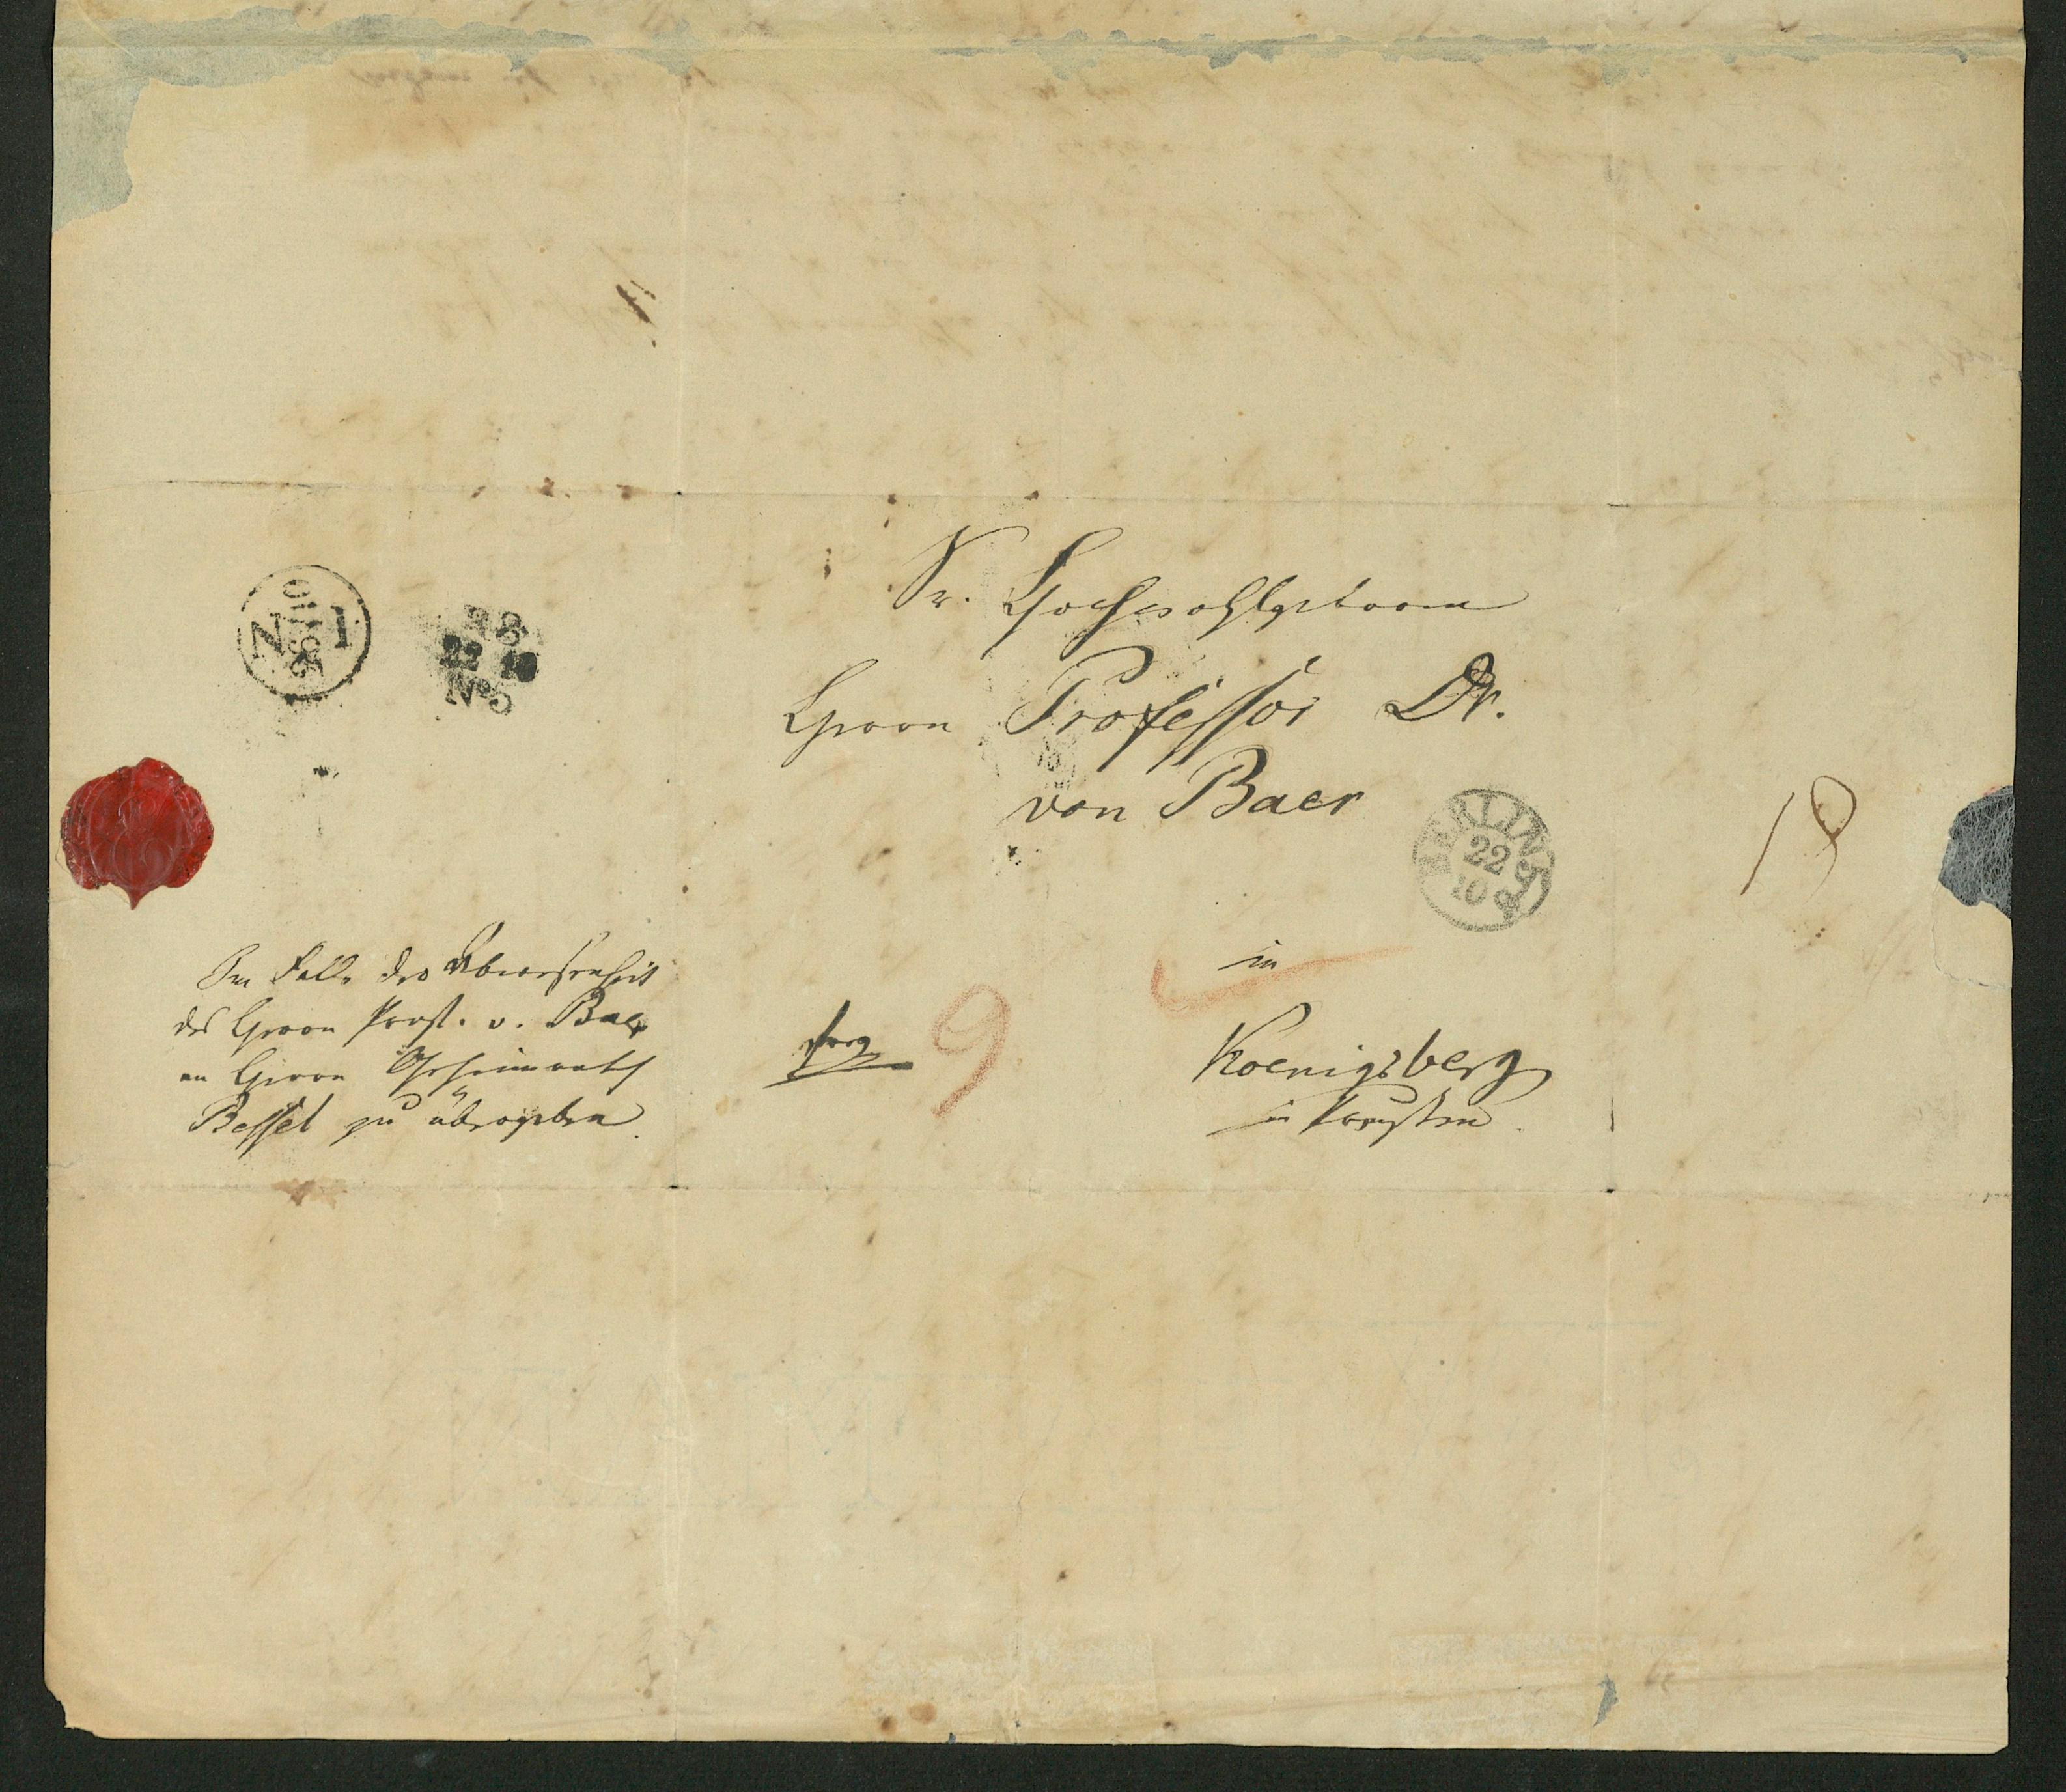 Sr. Hochwohlgeboren
Herrn Professor Dr.
von Baer
in
Koenigsberg
in Preußen.
18
9
Im Falle der Abwesenheit
des Herrn Prof. v. Baer
an Herrn Geheimrath
Bessel zu übergeben.
N 1
22 10
No 5
BERLIN
22
10